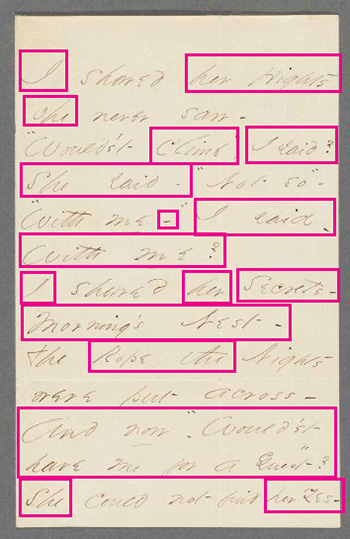 I showed her Hights
she never saw -
"Would'st Climb" I said?
She said - "Not so" -
"With me -" I said -
With me?
I showed her Secrets -
Morning's Nest -
The Rope the Nights
were put across -
And now - "Would'st
have me for a Guest"?
She could not find her Yes -